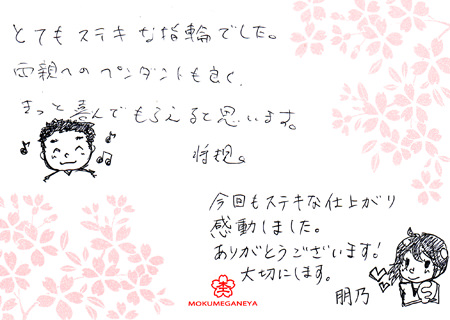 とてもステキな指輪でした。
両親へのペンダントも良く、
きっと喜んでもらえると思います。
将規。
今回もステキな仕上がり
感動しました。
ありがとうございます!
大切にします。
朋乃
MOKUMEGANEYA